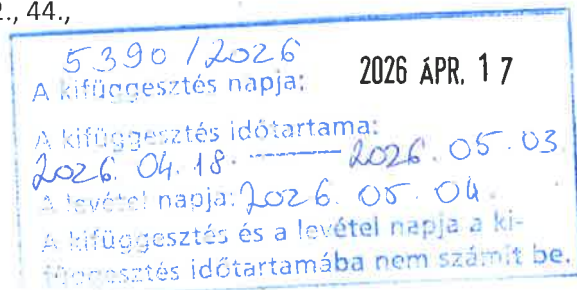 2., 44.,
5390/2026
A kifüggesztés napja: 2026 ÁPR. 17
A kifüggesztés időtartama:
2026. 04. 18. — 2026. 05. 03
A levétel napja: 2026. 05. 04.
A kifüggesztés és a levétel napja a ki-
függesztés időtartamába nem számít be.